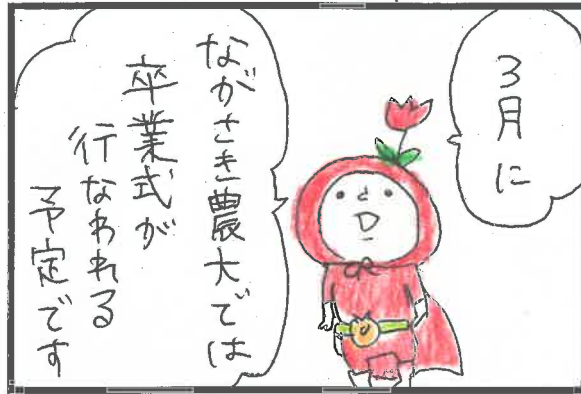 3月に
ながさき農大では
卒業式が
行なわれる
予定です